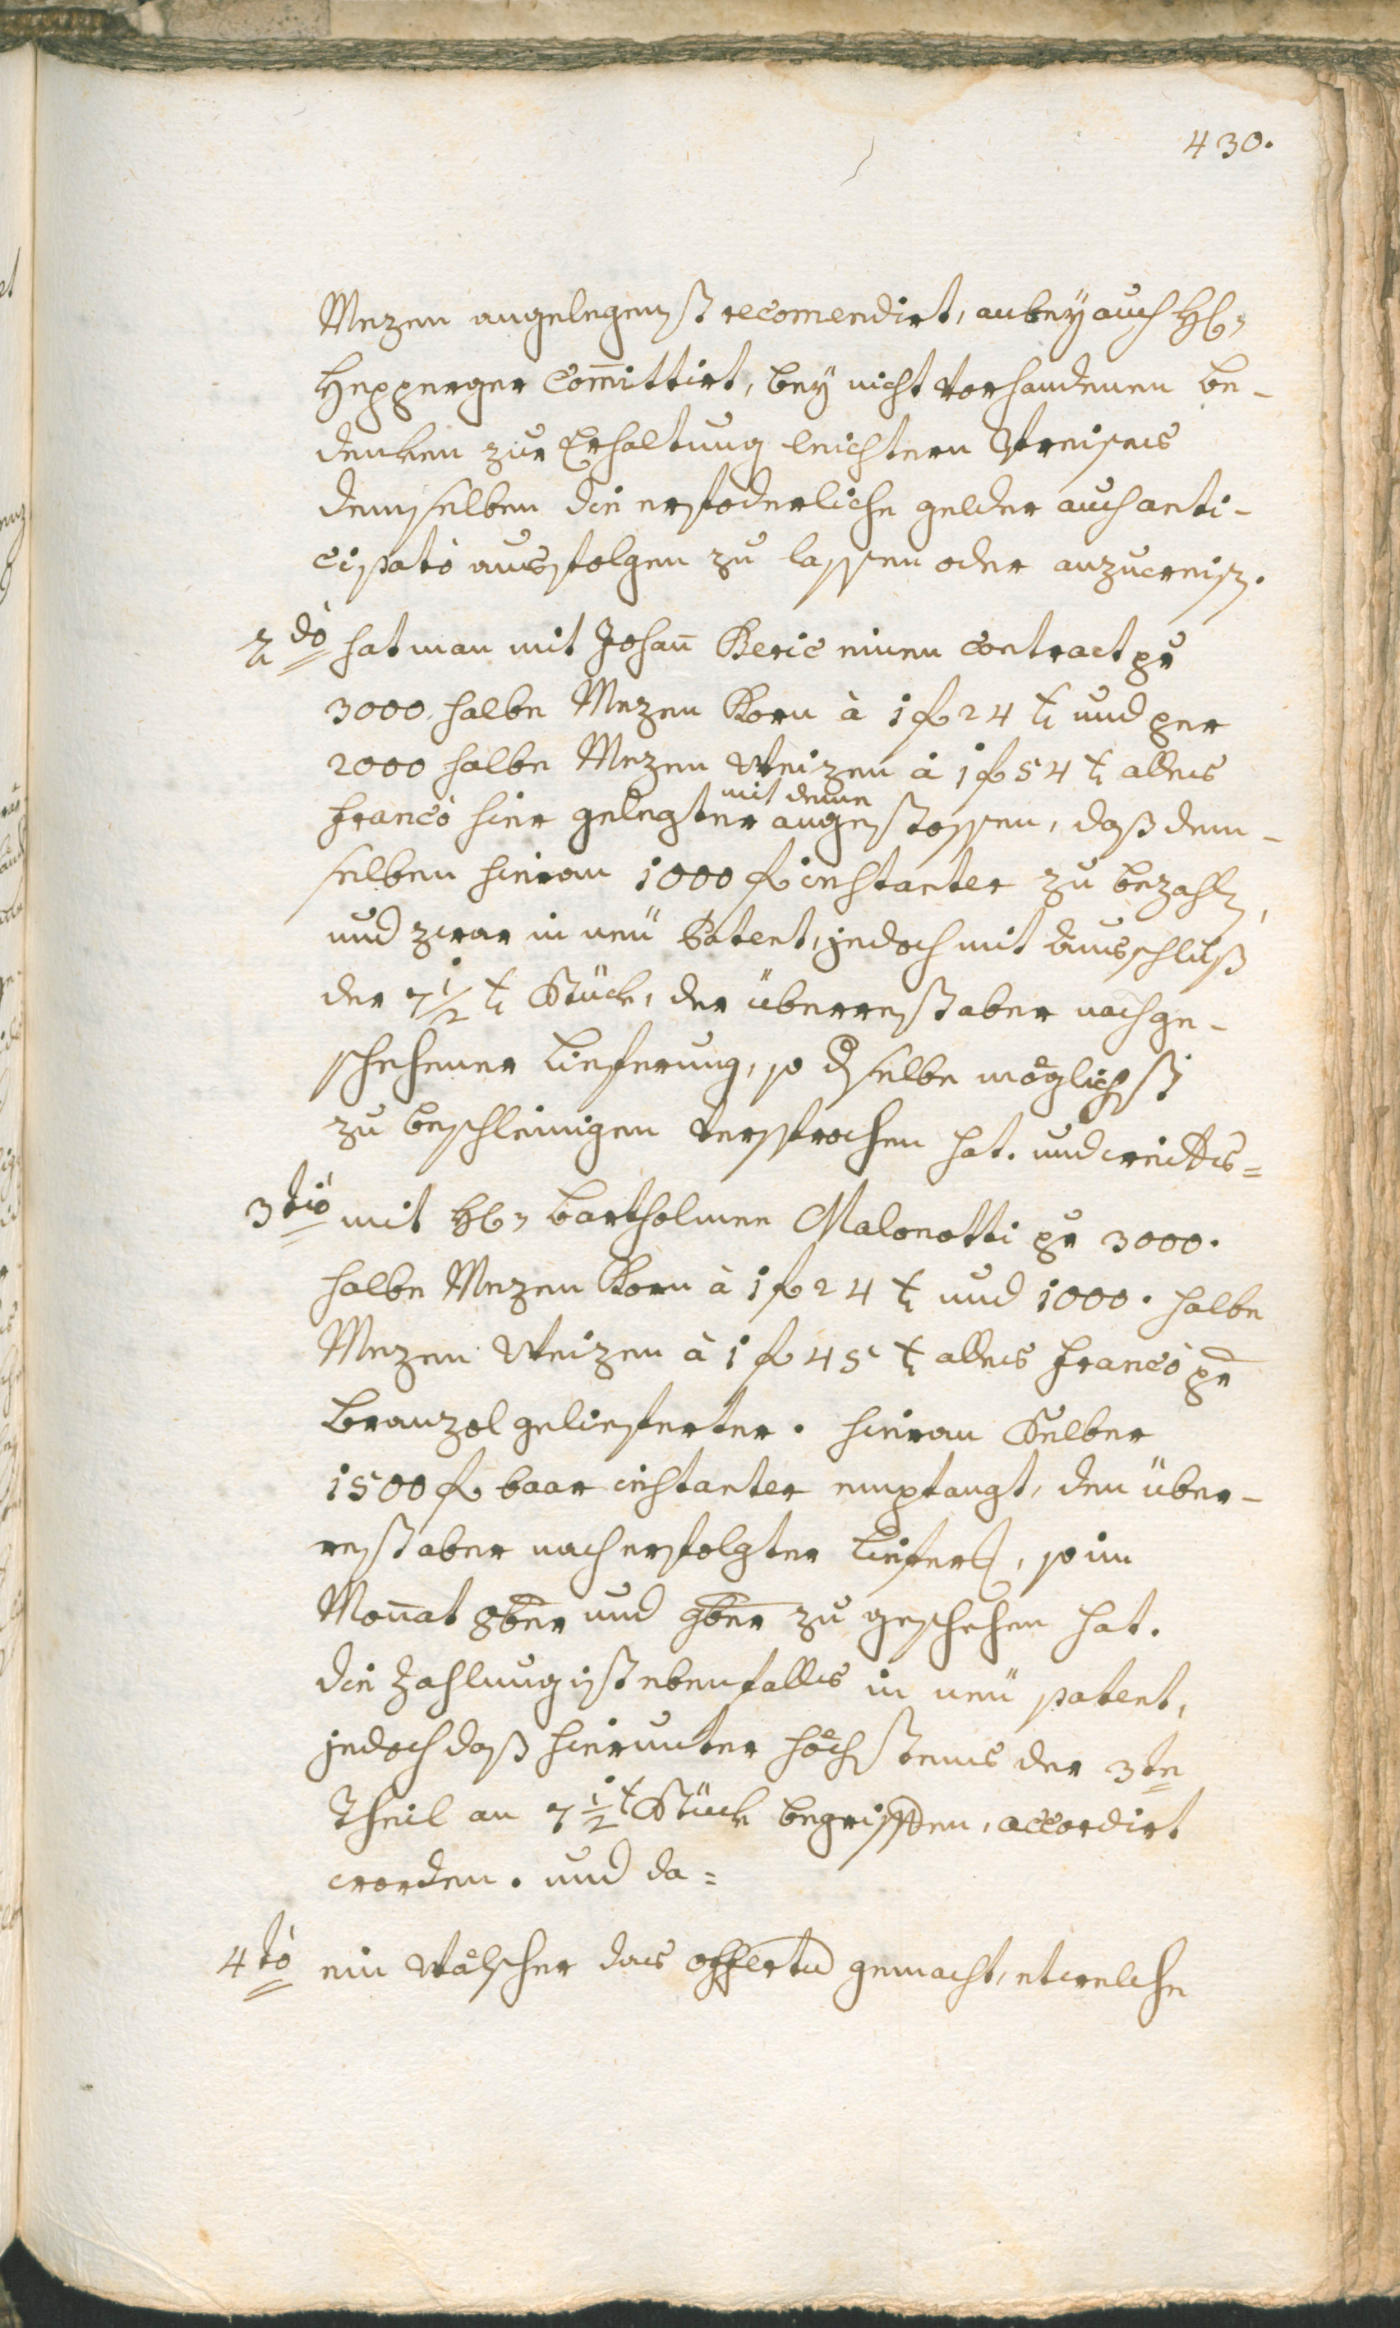 430.
Mezen angelegenst recomendirt, anbey auch H:
Hepperger Com̄ittirt, bey nicht vorhandenen be-
dencken zur Erhaltung leichtern Preises
demselben die erfoderliche gelder auch anti-
cipatò ausfolgen zu lassen oder anzuweisen.
2dò hat man mit Johan̄ Beric einen contract pr
3000 halbe Mezen Korn à 1 f 24 x und per
2000 halbe Mezen Weizen à 1 f 54 x alles
francò hier gelegter mit deme angestossen, daß dem-
selben hieran 1000 f instanter zu bezahlen,
und zwar in neü Patent, jedoch mit Ausschluß
der 7 1/2 x Stück, der überrest aber nach ge-
schehener Lieferung, so dselbe möglichst
zu beschleinigen versprochen hat. und weiters=
3tiò mit H: Bartholmee Malonotti pr 3000.
halbe Mezen Korn à 1 f 24 x und 1000. halbe
Mezen Weizen à 1 f 45 x alles francò pr
Branzol geliefferter. hieran Selber
1500 f baar instanter empfangt, den über-
rest aber nach erfolgter Lieferung, so im
Mon̄at 8ber und 9ber zu geschehen hat.
die Zahlung ist ebenfalls in neü patent,
jedoch daß hierunter höchstens der 3te
Theil an 7 1/2 x Stück begriffen, accordirt
worden. und da=
4tò ein Wälscher das offerta gemacht, etwelche